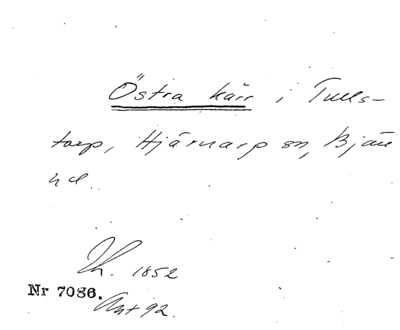 Östra kärr i Tulls-
torp, Hjärnarp sn, Bjäre
hd.
Lh. 1852
Nr 7086.
Akt 92.